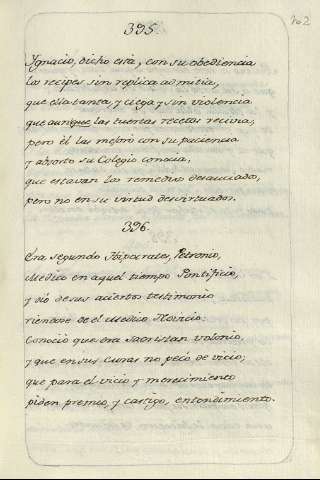 102
395.
Ygnacio, dicho está, con su obediencia
los recipes sin replica admitia,
que esta santa, y ciega y sin violencia
que aunque las tuertas recetas
pero èl las mejorò con su paciencia
y absorto su Colegio conocia,
que estavan los remedios desauciados,
pero no en su virtud desvirtuados.
396.
Era segundo Hipocrates, Petronio,
Medico en aquel tiempo Pontificio,
y diò de sus aciertos testimonio
de el Medico
Conociò que era
y que en sus Curas no pecò de vicio;
que para el vicio y merecimiento
piden premio, y castigo, entendimiento.